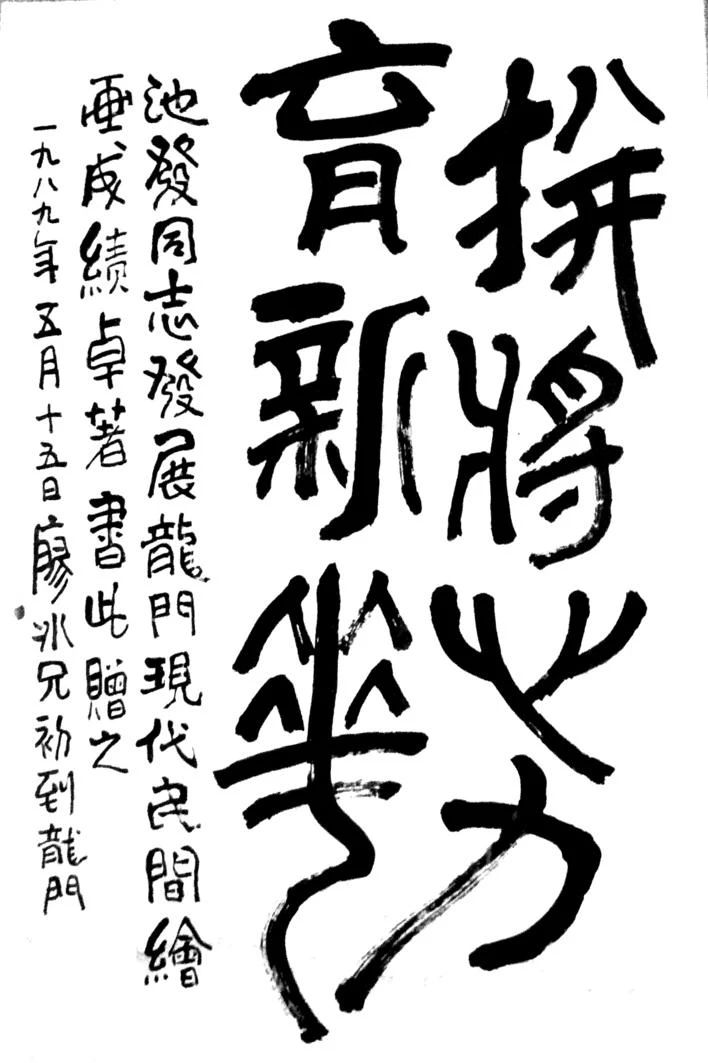 拚將心力
育新華
池發同志發展龍門現代民間繪
畫成績卓著書此贈之
一九八九年五月十五日廖冰兄初到龍門